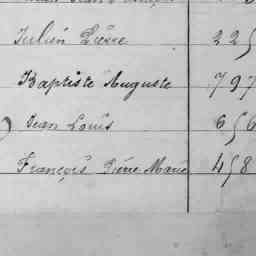 Julien Pierre 225
Baptiste Auguste 797
Jean Louis 656
François Pierre Marie 458